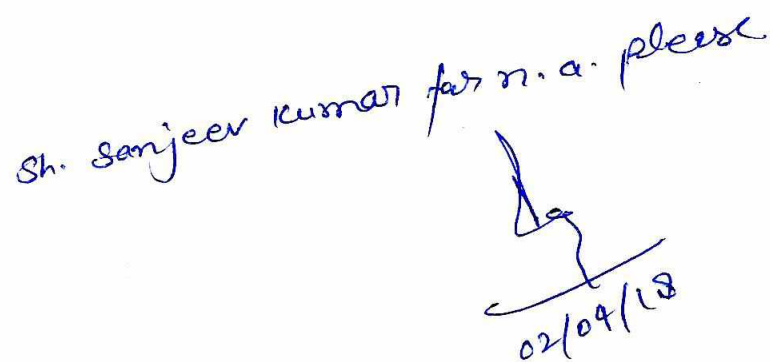 Sh. Sanjeev Kumar for n.a. please
02/04/18